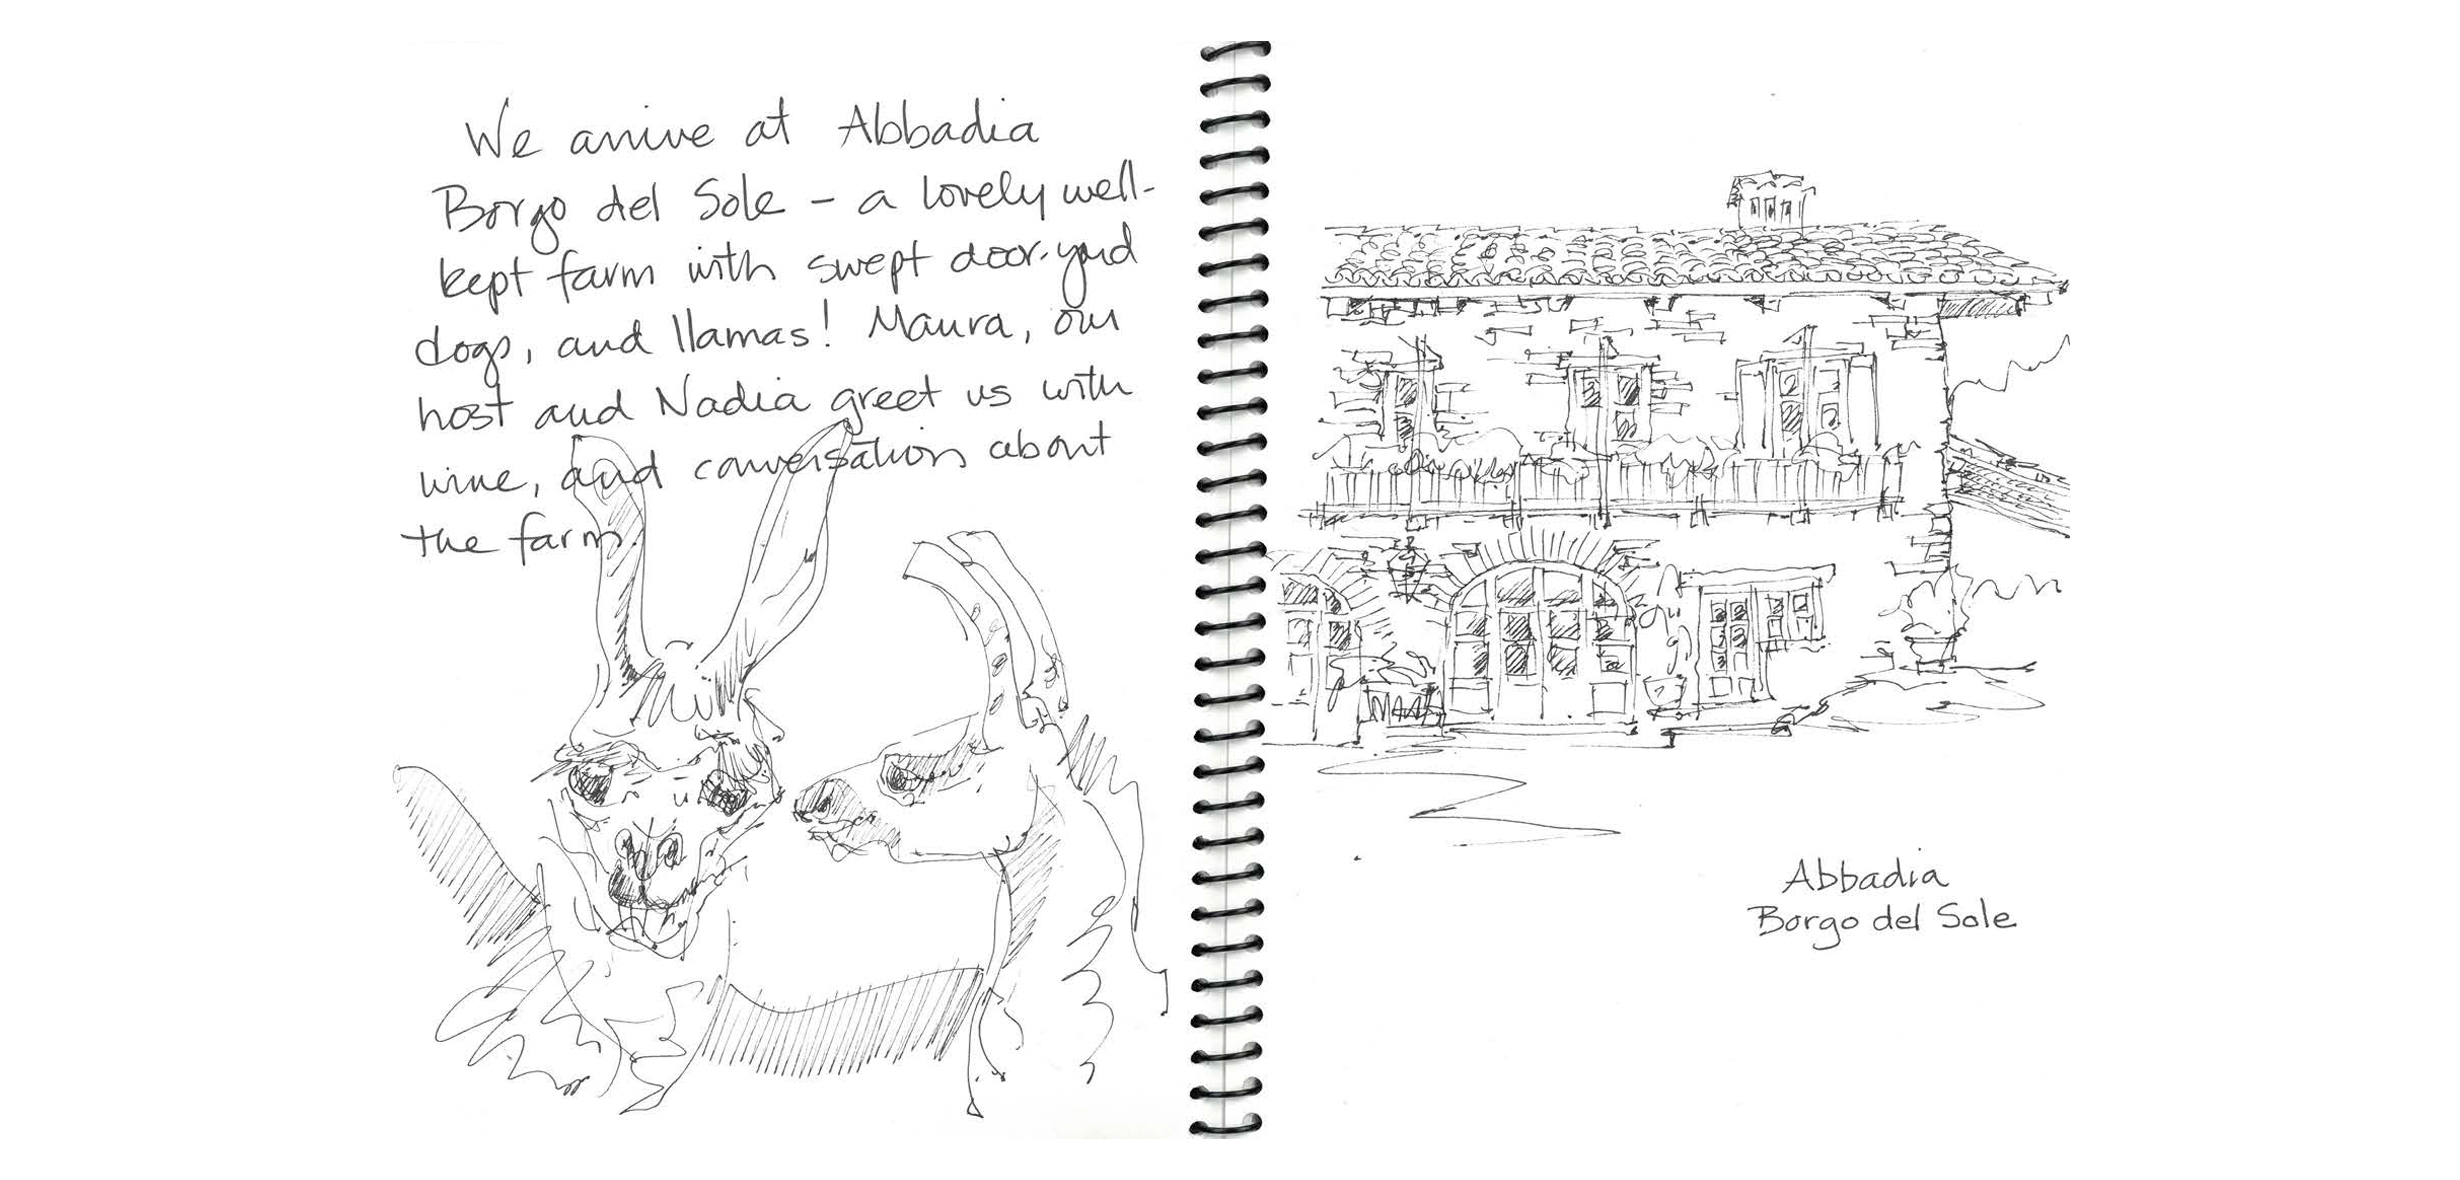 We arrive at Abbadia
Borgo del Sole – a lovely well-
kept farm with swept door-yard
dogs, and llamas! Maura, our
host and Nadia greet us with
wine, and conversation about
the farm.
Abbadia
Borgo del Sole